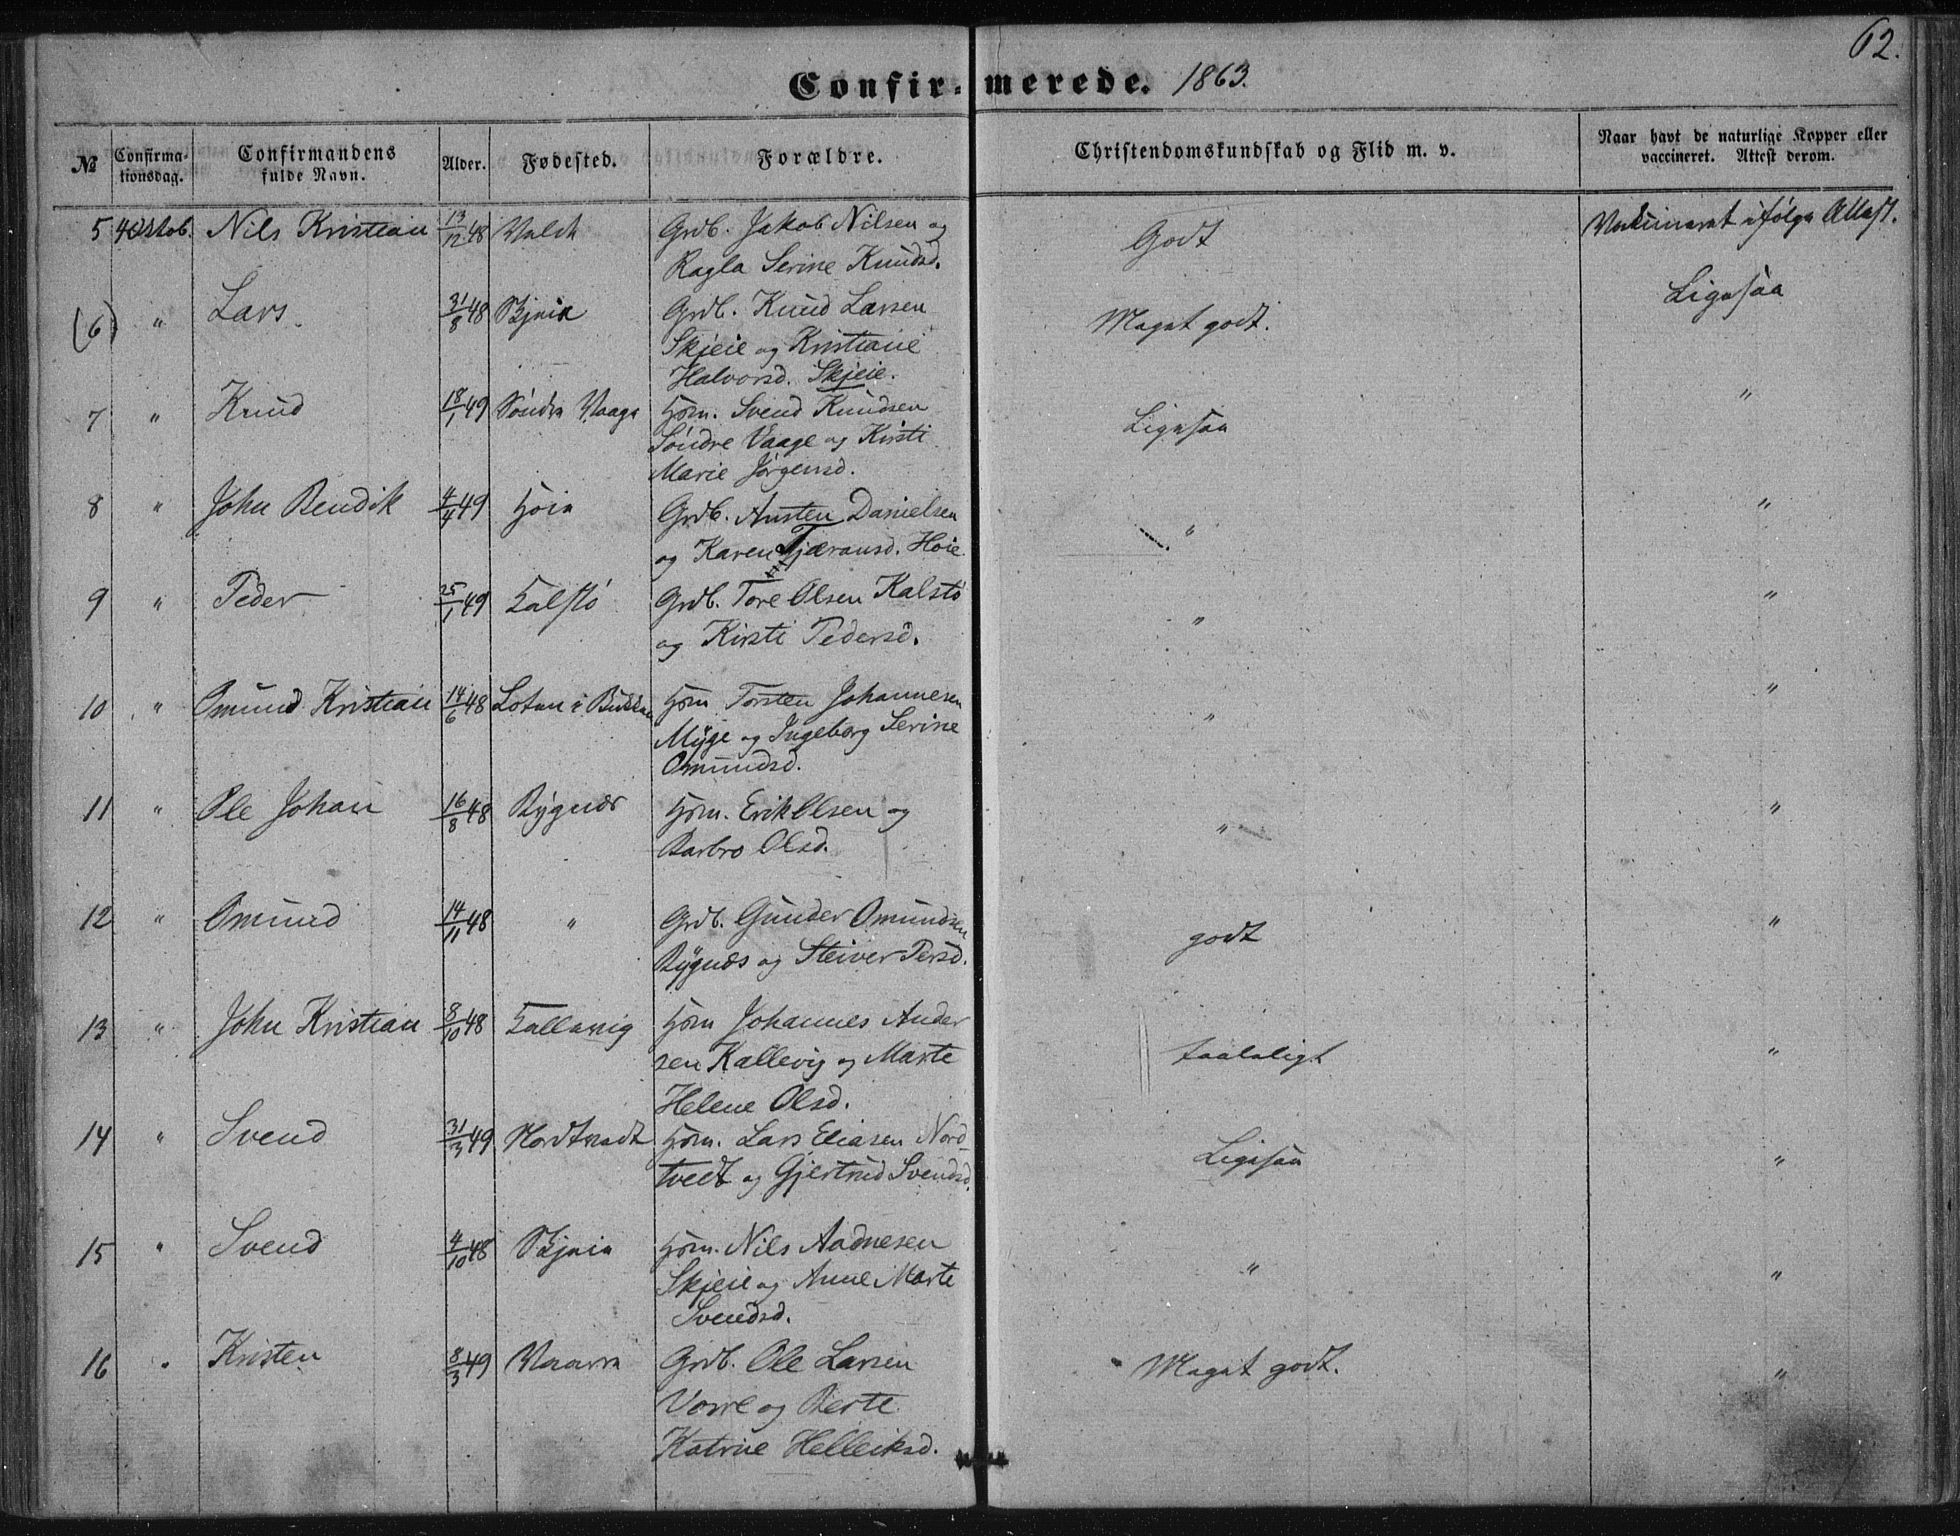 62.
Confirmerede. 1863.
№ Confirma-tionsdag. Confirmandens fulde Navn. Alder. Fødested. Forældre. Christendomskundskab og Flid m. v. Naar havt de naturlige Kopper eller vaccineret. Attest derom.
5 4 Oktob. Nils Kristian 13/12 48 Grdb. Jakob Nilsen og Godt Vakcineret ifølge Attest.
Ragla Serine Knudsd.
(6) " Lars. 31/8 48 Skjeie Grdb. Knud Larsen Meget godt. Ligesaa
Skjeie og Kristiane
Halvorsd. Skjeie.
7 " Knud 18/1 49 Söndre Vaage Hsm. Svend Knudsen Ligesaa "
Söndre Vaage og Kirsti
Marie Jörgensd.
8 " John Bendik 4/4 49 Höie Grdb. Austen Danielsen " "
og Karen Tjæransd. Höie
9 " Peder 25/1 49 Kalstö Grdb. Tore Olsen Kalstö " "
og Kirsti Pedersd.
10 " Omund Kristian 14/6 48 Loten i Bukken Hsm Torsten Johannesen " "
Myge og Ingeborg Serine
Omundsd.
11 " Ole Johan 16/8 48 Rygnæs Hsm. Erik Olsen og " "
Barbro Olsd.
12 " Omund 14/11 48 " Grdb. Gunder Omundsen godt "
Rygnæs og Steiver Persd.
13 " John Kristian 8/10 48 Kallevig Hsm Johannes Ander taaleligt "
sen Kallevig og Marte
Helene Olsd.
14 " Svend 31/3 49 Nordtvedt Hsm. Lars Eliasen Nord Ligesaa "
tvedt og Gjertrud Svendsd.
15 " Svend 4/10 48 Skjeie Hsm. Nils Aadnesen " "
Skjeie og Anne Marte
Svendsd.
16 " Kristen 8/3 49 Vaarre Grdb. Ole Larsen Meget godt. "
Vorre og Berte
Katrine Helleiksd.